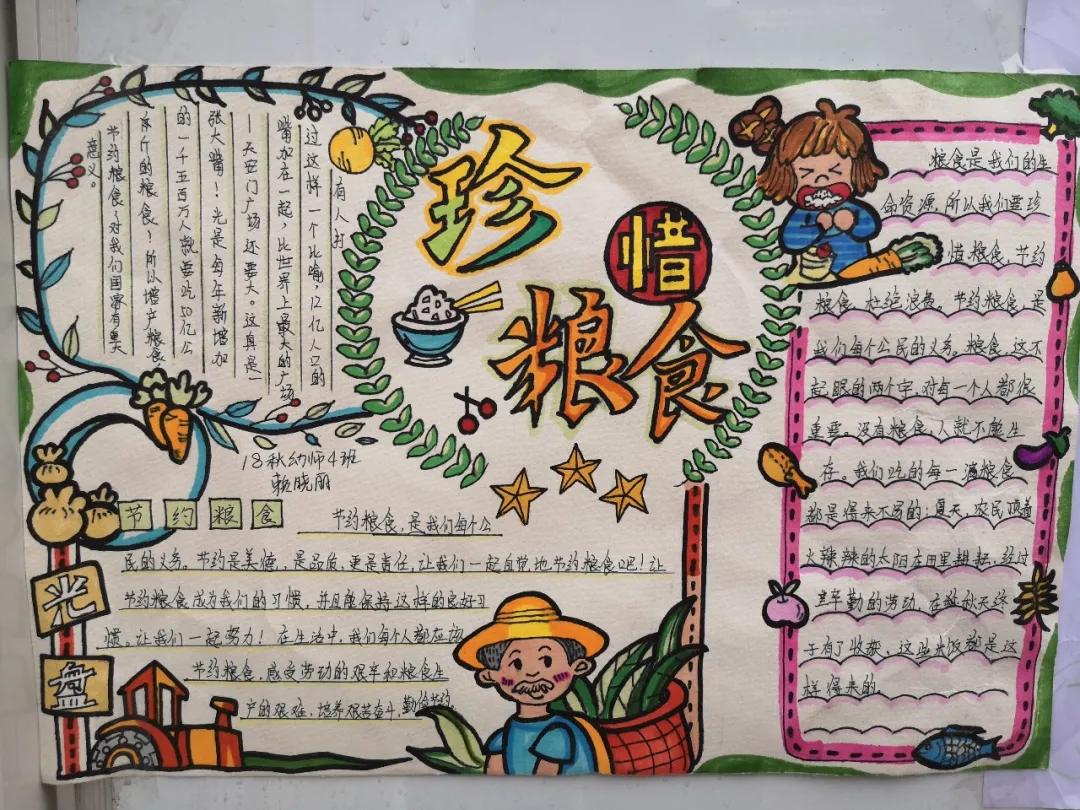 珍
惜
粮食
有人打
过这样一个比喻，12亿人口的
嘴加在一起，比世界上最大的广场
—天安门广场还要大。这真是一
张大嘴！光是每年新增加
的一千五百万人就要吃50亿公
斤的粮食！所以增产粮食
节约粮食，对我们国家有重大
意义。
18秋幼师4班
赖晓丽
节约粮食
光
盘
节约粮食，是我们每个公
民的义务。节约是美德，是品质，更是责任，让我们一起自觉地节约粮食吧！让
节约粮食成为我们的习惯，并且能保持这样的良好习
惯。让我们一起努力！在生活中，我们每个人都应该
节约粮食，感受劳动的艰辛和粮食生
产的艰难，培养艰苦奋斗，勤俭节约
粮食是我们的生
命资源，所以我们要珍
惜粮食，节约
粮食，杜绝浪费。节约粮食，是
我们每个公民的义务。粮食，这不
起眼的两个字，对每一个人都很
重要。没有粮食，人就不能生
存。我们吃的每一滴粮食
都是得来不易的：夏天，农民顶着
火辣辣的太阳在田里耕耘，经过
辛勤的劳动，在秋天终
于有了收获，这些米饭都是这
样得来的